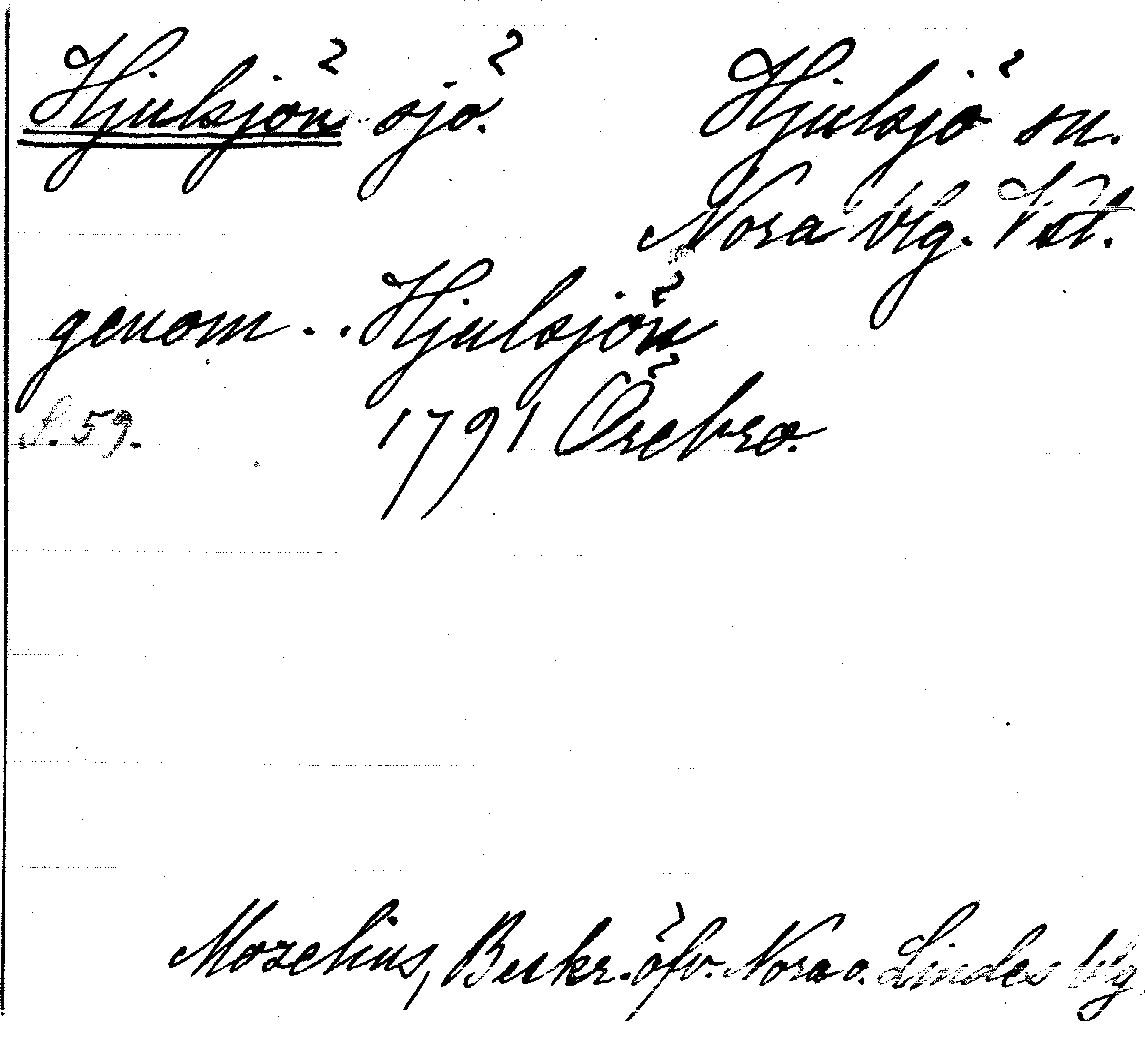 Hjulsjön sjö. Hjulsjö sn.
Nora blg. Vstl.
genom . . Hjulsjön
S. 59. 1791 Örebro.
Mozelius, Beskr. öfv. Nora o. Lindes blg.